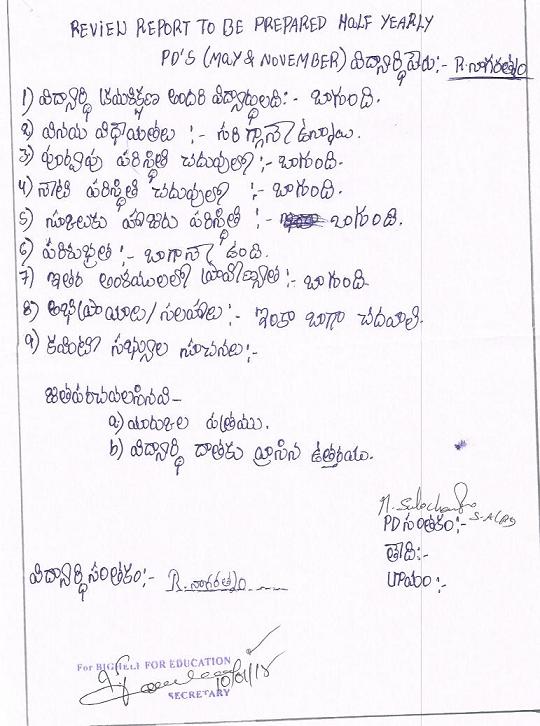 REVIEW REPORT TO BE PREPARED HALF YEARLY
PD'S (MAY & NOVEMBER) విద్యార్థి పేరు:- R. నాగరత్నం
1) విద్యార్థి క్రమశిక్షణ అందరి విద్యార్థులది:- బాగుంది.
2) వినయ విధేయతలు :- సరిగ్గానే ఉన్నాయి.
3) పూర్వపు పరిస్థితి చదువులో :- బాగుంది.
4) నాటి పరిస్థితి చదువులో :- బాగుంది.
5) స్కూలుకు హాజరు పరిస్థితి :- బాగుంది.
6) పరిశుభ్రత :- బాగానే ఉంది.
7) ఇతర అంశములలో ప్రావీణ్యత :- బాగుంది.
8) అభిప్రాయాలు/సలహాలు :- ఇంకా బాగా చదవాలి.
9) కమిటీ సభ్యుల సూచనలు :-
జతపరచవలసినవి-
a) మార్కుల పత్రము.
b) విద్యార్థి దాతకు వ్రాసిన ఉత్తరము.
PD సంతకం:- S-A(PS)
తేది:-
గ్రామం:-
విద్యార్థి సంతకం:- R. నాగరత్నం
For BIGHELP FOR EDUCATION
10/01/18
SECRETARY